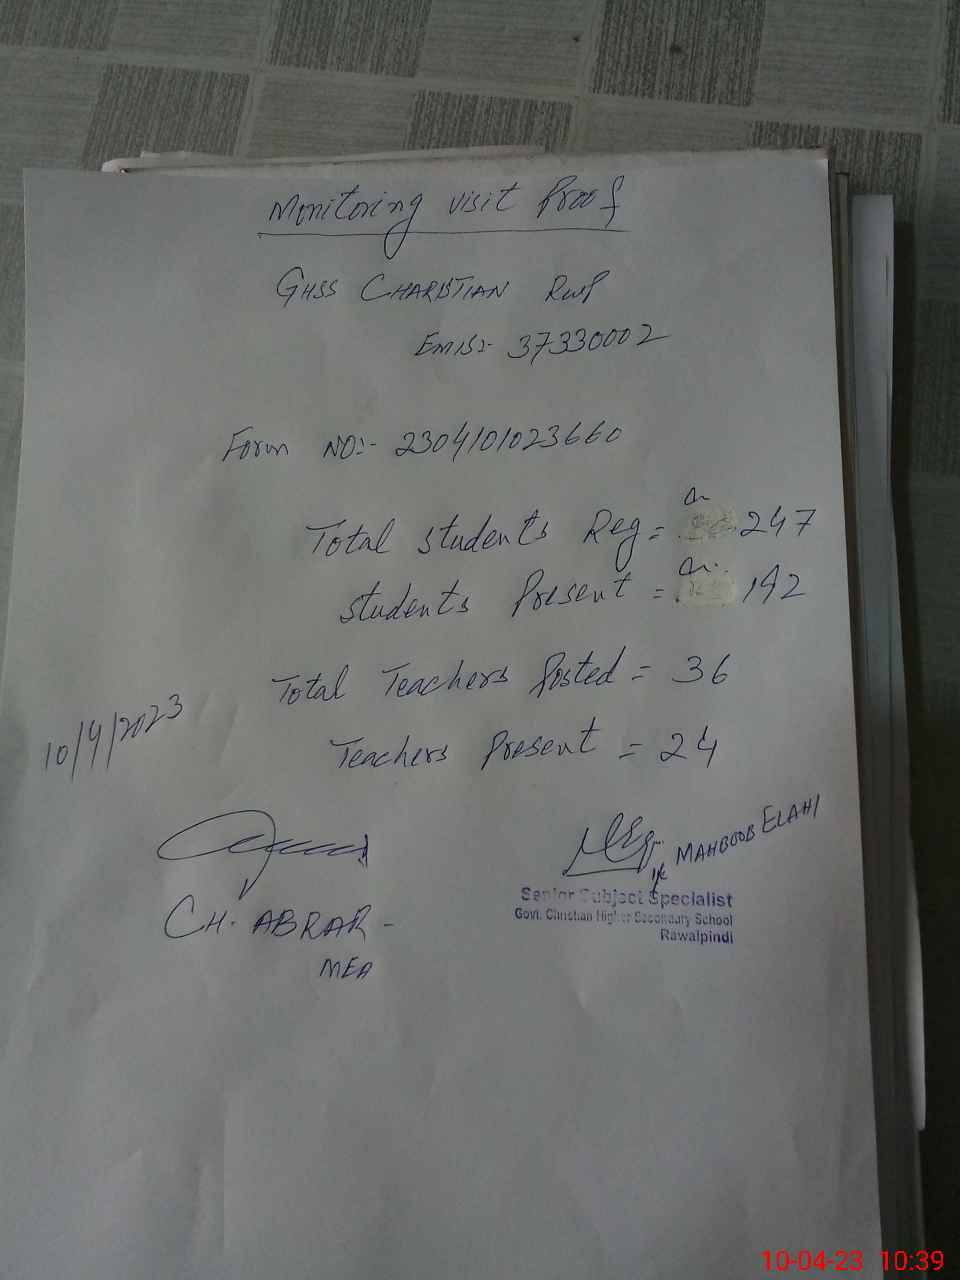 Monitoring visit Proof
GHSS CHARISTIAN RWP
EMIS:- 37330002
Form NO:- 2304101023660
Total students Reg = 247
students Present = 192
Total Teachers Posted = 36
10/4/2023
Teachers Present = 24
MAHBOOB ELAHI
Senior Subject Specialist
Govt. Christian Higher Secondary School
Rawalpindi
CH. ABRAR -
MEA
10-04-23 10:39